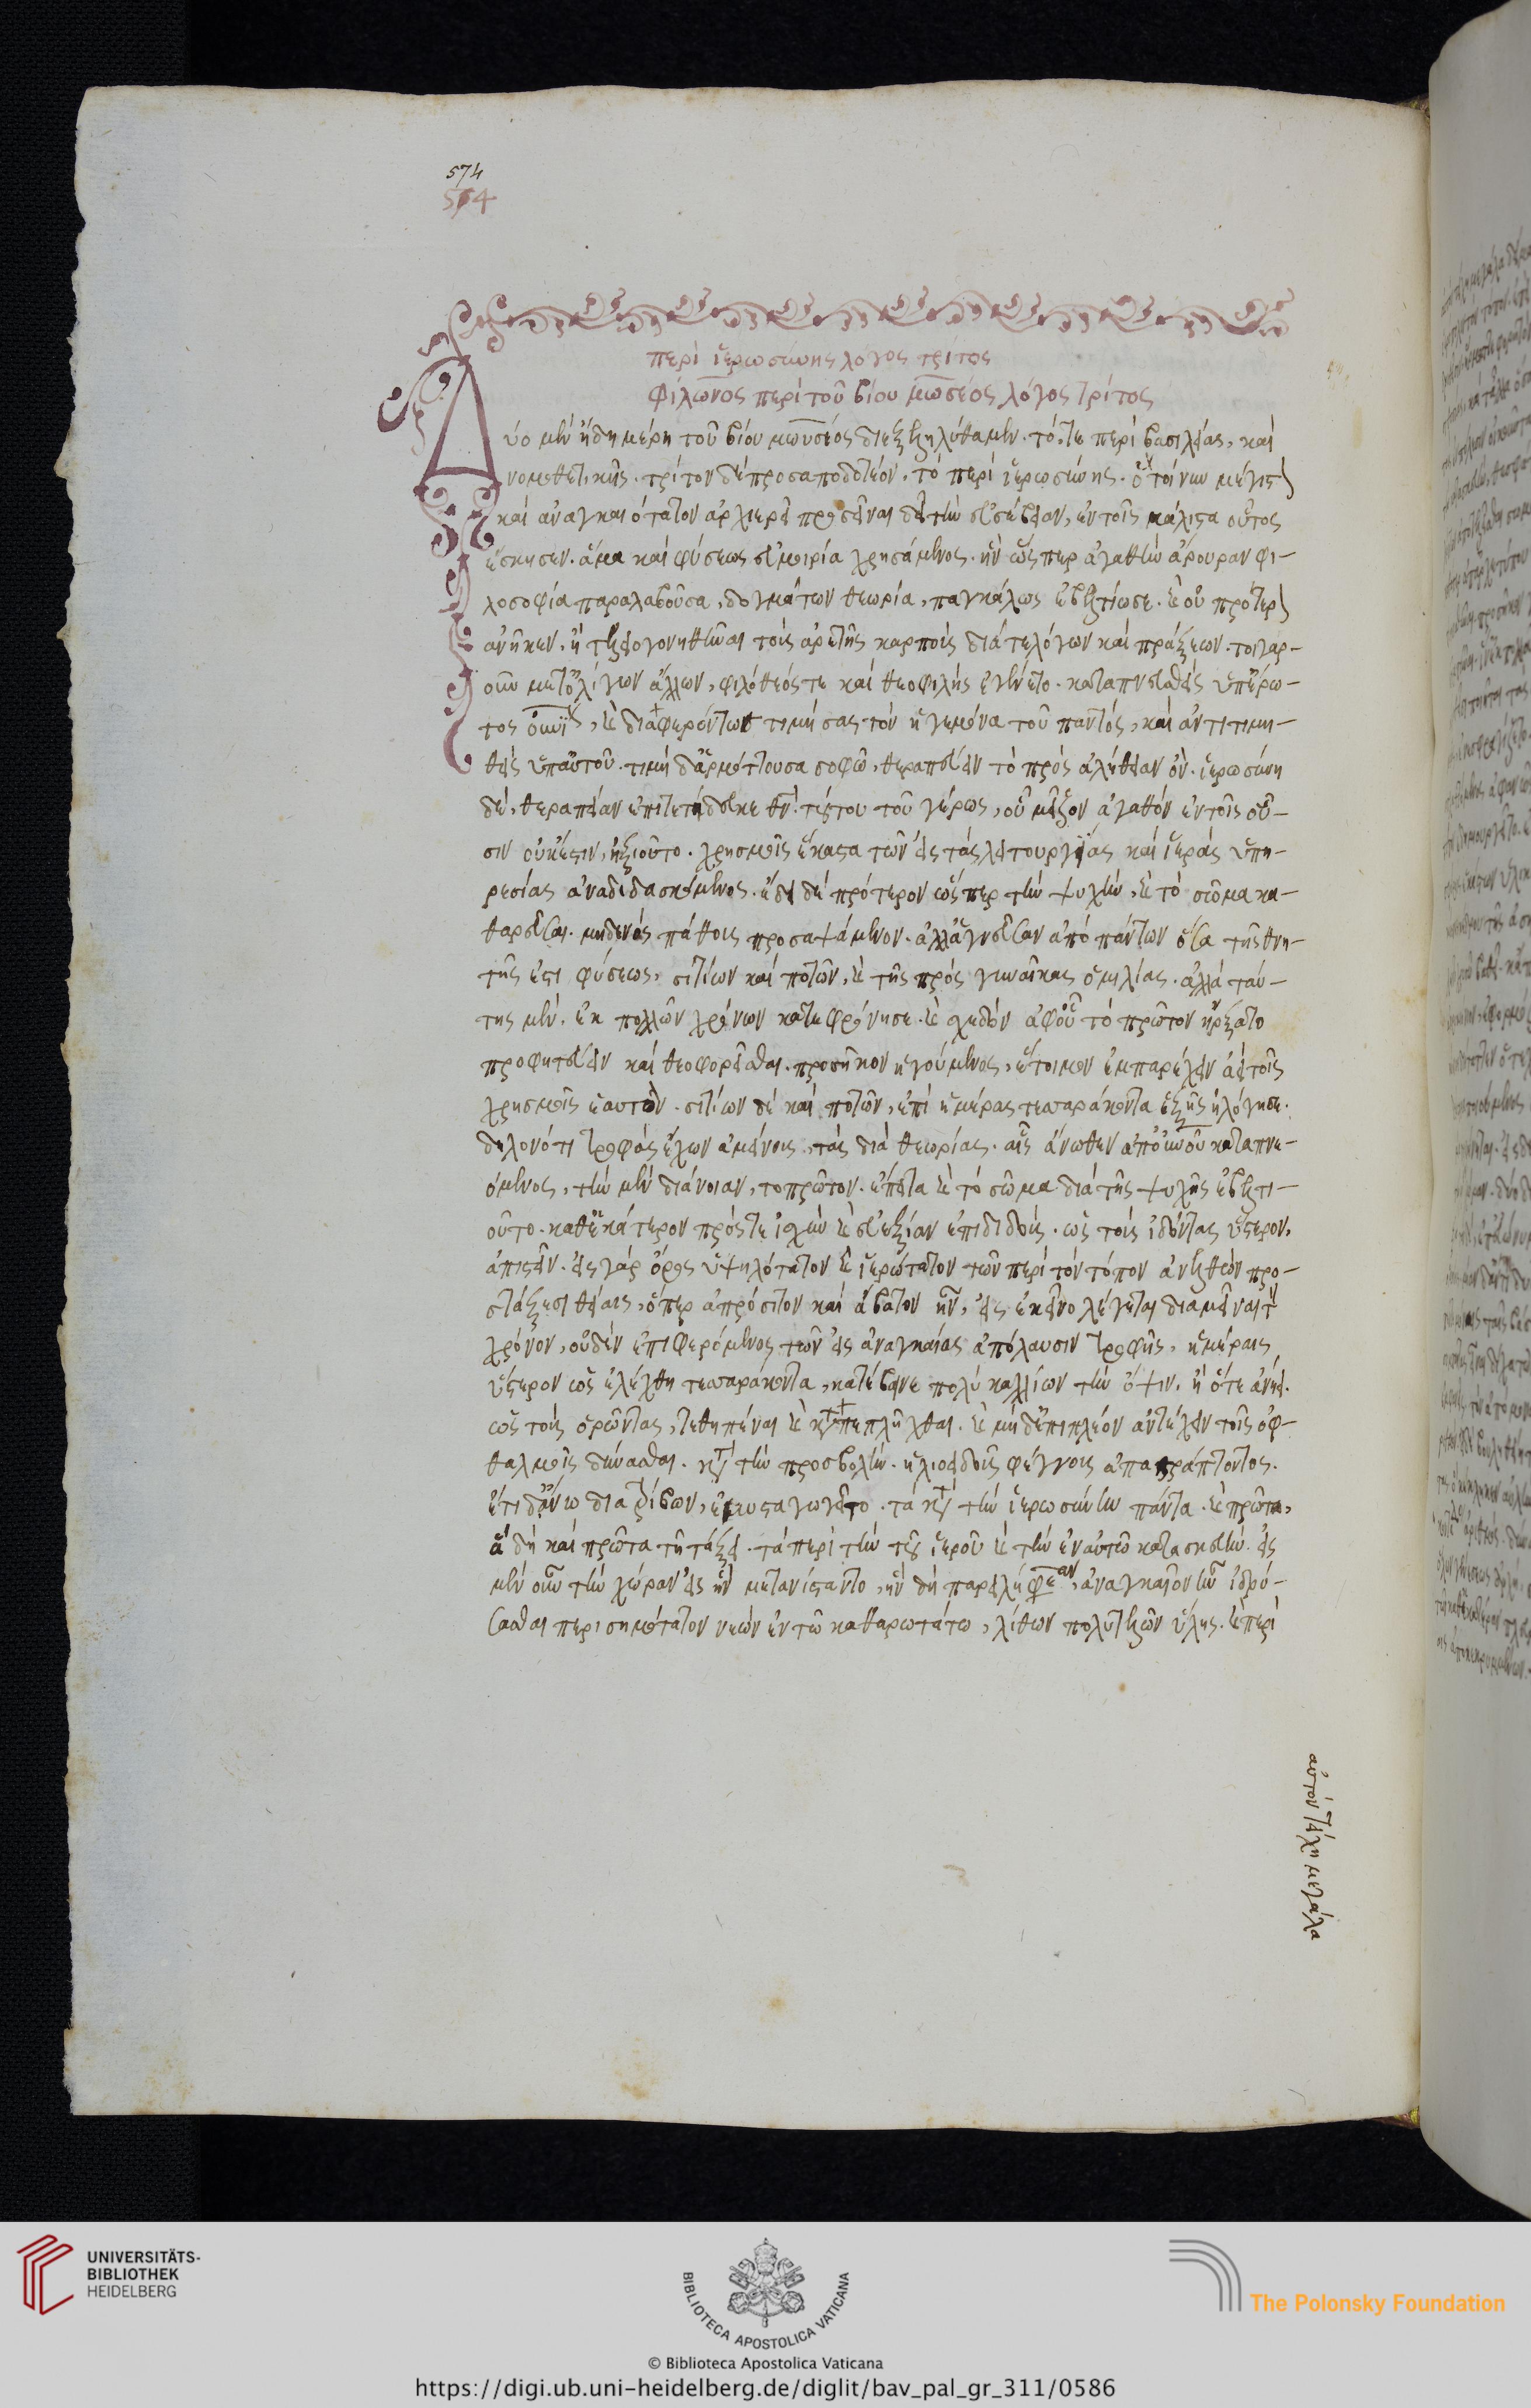 574
574
περὶ ἱερωσύνης λόγος τρίτος
Φίλωνος περὶ τοῦ βίου μωσέος λόγος τρίτος
Δύο μὲν ἤδη μέρη τοῦ βίου μωυσέος διεξεληλύθαμεν. τό, τε περὶ βασιλείας, καὶ
νομοθετικῆς. τρίτον δὲ προσαποδοτέον, τὸ περὶ ἱερωσύνης. ὃ τοίνυν μέγιστον
καὶ ἀναγκαιότατον ἀρχιερεῖ προσεῖναι δεῖ τὴν εὐσέβειαν, ἐν τοῖς μάλιστα οὗτος
ἤσκησεν. ἅμα καὶ φύσεως εὐμοιρία χρησάμενος. ἣν ὥσπερ ἀγαθὴν ἄρουραν φι-
λοσοφία παραλαβοῦσα, δογμάτων θεωρία, παγκάλως ἐβελτίωσε. καὶ οὐ πρότερον
ἀνῆκεν, ἢ τελειογονηθῆναι τοὺς ἀρετῆς καρποὺς διά τε λόγων καὶ πράξεων. τοιγαρ-
οῦν μετ' ὀλίγων ἄλλων, φιλόθεός τε καὶ θεοφιλὴς ἐγένετο. καταπνευσθεὶς ὑπ' ἔρω-
τος οὐνίου, καὶ διαφερόντως τιμήσας τὸν ἡγεμόνα τοῦ παντός, καὶ ἀντιτιμη-
θεὶς ὑπ' αὐτοῦ. τιμὴ δ' ἁρμόττουσα σοφῷ, θεραπεύειν τὸ πρὸς ἀλήθειαν ὄν. ἱερωσύνη
δὲ, θεραπείαν ἐπιτετήδευκε θεοῦ. τούτου τοῦ γέρως, οὗ μεῖζον ἀγαθὸν ἐν τοῖς οὖ-
σιν οὐκ ἔστιν, ἠξιοῦτο. χρησμοῖς ἕκαστα τῶν εἰς τὰς λειτουργίας καὶ ἱερὰς ὑπη-
ρεσίας ἀναδιδασκόμενος. ἔδει δὲ πρότερον ὥσπερ τὴν ψυχὴν, καὶ τὸ σῶμα κα-
θαρεῦσαι. μηδενὸς πάθους προσαψάμενον. ἀλλ' ἁγνεῦσαι ἀπὸ πάντων ὅσα τῆς θνη-
τῆς ἐστι φύσεως, σιτίων καὶ ποτῶν, καὶ τῆς πρὸς γυναῖκας ὁμιλίας. ἀλλὰ ταύ-
της μὲν, ἐκ πολλῶν χρόνων κατεφρόνησε. καὶ σχεδὸν ἀφ' οὗ τὸ πρῶτον ἤρξατο
προφητεύειν καὶ θεοφορεῖσθαι. προσῆκον ἡγούμενος, ἕτοιμον ἐμπαρέχειν ἀεὶ τοῖς
χρησμοῖς ἑαυτὸν. σιτίων δὲ καὶ ποτῶν, ἐπὶ ἡμέρας τεσσαράκοντα ἑξῆς ἠλόγησε.
δηλονότι τροφὰς ἔχων ἀμείνους, τὰς διὰ θεωρίας. αἷς ἄνωθεν ἀπ' οὐνοῦ καταπνε-
όμενος, τὴν μὲν διάνοιαν, τοπρῶτον. ἔπειτα καὶ τὸ σῶμα διὰ τῆς ψυχῆς ἐβελτι-
οῦτο. καθ' ἑκάτερον πρός τε ἰσχὺν καὶ εὐεξίαν ἐπιδιδοὺς. ὡς τοὺς ἰδόντας ὕστερον,
ἀπιστεῖν. εἰς γὰρ ὄρος ὑψηλότατον καὶ ἱερώτατον τῶν περὶ τὸν τόπον ἀνελθὼν προ-
στάξεσι θείαις, ὅπερ ἀπρόσιτον καὶ ἄβατον ἦν, εἰς ἐκεῖνο λέγεται διαμεῖναι τὸν
χρόνον, οὐδὲν ἐπιφερόμενος τῶν εἰς ἀναγκαίας ἀπόλαυσιν τροφῆς, ἡμέραις
ὕστερον ὡς ἐλέχθη τεσσαράκοντα, κατέβαινε πολὺ καλλίων τὴν ὄψιν, ἢ ὅτε ἀνῄει.
ὡς τοὺς ὁρῶντας, τεθηπέναι καὶ καταπεπλῆχθαι. καὶ μηδ' ἐπιπλέον ἀντέχειν τοῖς ὀφ-
θαλμοῖς δύνασθαι. κατὰ τὴν προσβολὴν. ἡλιοειδοῦς φέγγους ἀπαστράπτοντος.
ἔτι δ' ἄνω διατρίβων, ἐμυσταγωγεῖτο. τὰ κατὰ τὴν ἱερωσύνην πάντα. καὶ πρῶτα,
ἃ δὴ καὶ πρῶτα τῇ τάξει. τὰ περὶ τὴν τοῦ ἱεροῦ καὶ τὴν ἐν αὐτῷ κατασκευὴν. εἰς
μὲν οὖν τὴν χώραν εἰς ἣν μετανίσταντο, ἣν δὴ παρειλήφεσαν, ἀναγκαῖον ἦν ἱδρύ-
σασθαι περισημότατον νεὼν ἐν τῷ καθαρωτάτω, λίθων πολυτελῶν ὕλης. καὶ περὶ
αὐτὸν τείχη μεγάλα
UNIVERSITÄTS-
BIBLIOTHEK
HEIDELBERG
BIBLIOTECA APOSTOLICA VATICANA
The Polonsky Foundation
© Biblioteca Apostolica Vaticana
https://digi.ub.uni-heidelberg.de/diglit/bav_pal_gr_311/0586